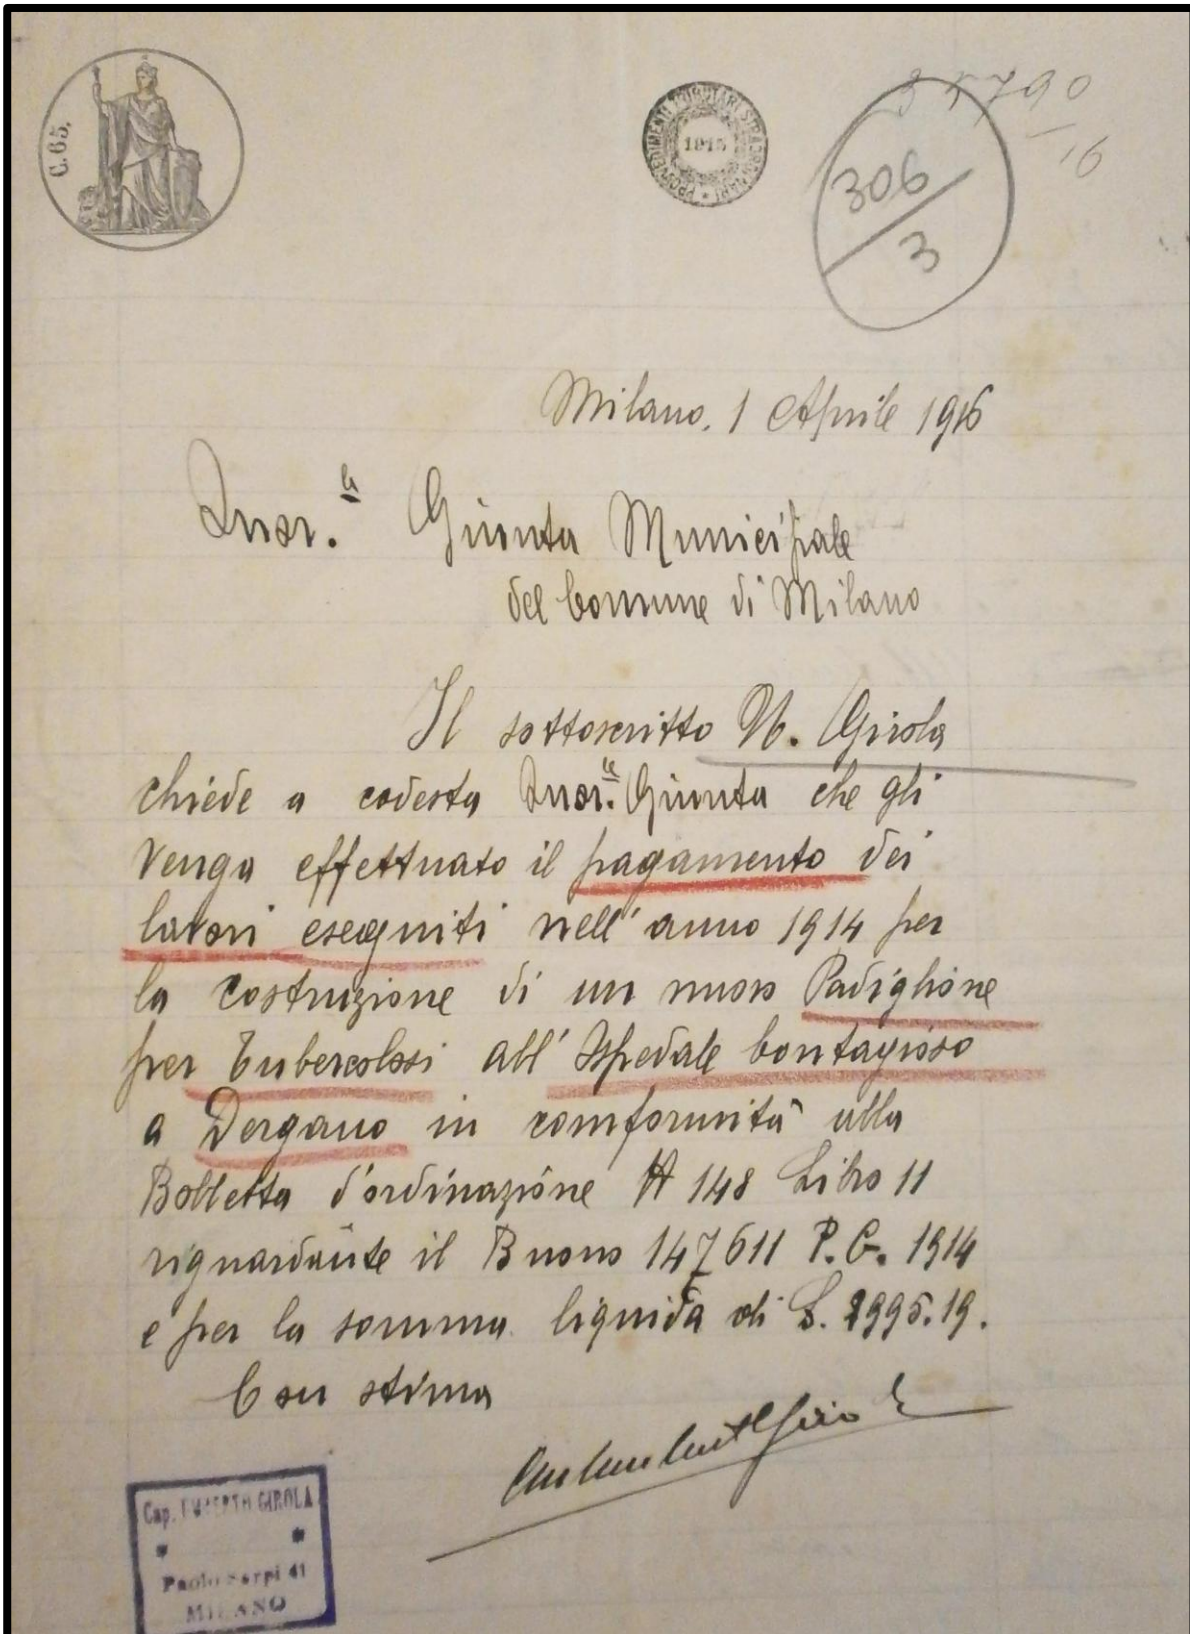 C. 65.
PROVVEDIMENTI STRAORDINARI
1915
35790
/16
306
3
Milano, 1 Aprile 1916
Onor.le Giunta Municipale
del Comune di Milano
Il sottoscritto U. Girola
chiede a codesta Onor.le Giunta che gli
venga effettuato il pagamento dei
lavori eseguiti nell'anno 1914 per
la costruzione di un nuovo Padiglione
per Tubercolosi all'Ospedale Contagioso
a Dergano in comformità alla
Bolletta d'ordinazione N 148 Libro 11
riguardante il Buono 147611 P.G. 1914
e per la somma liquida di L. 2995.19.
Con stima
Cap. UMBERTO GIROLA
Paolo Sarpi 41
MILANO